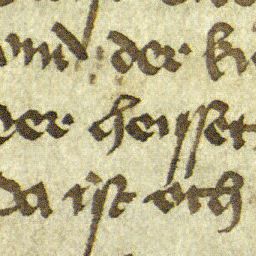 vnd der kü
der heysset
da ist och